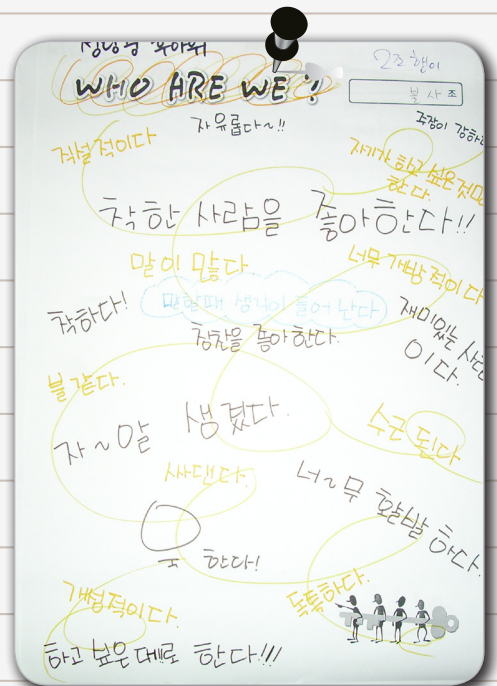 WHO ARE WE?!
2조 행이
불사조
자유롭다~!!
주장이 강하다
직설적이다
자기가 하고 싶은것만
한다.
착한 사람을 좋아한다!!
말이 많다
너무 개방적이다
말할때 생각이 들어난다
착하다!
칭찬을 좋아한다.
재미있는 사람
이다.
불같다.
자~알 생겼다.
수근된다
싸댄다.
너~무 활발하다.
한다!
개성적이다.
독특하다.
하고 싶은 대로 한다!!!